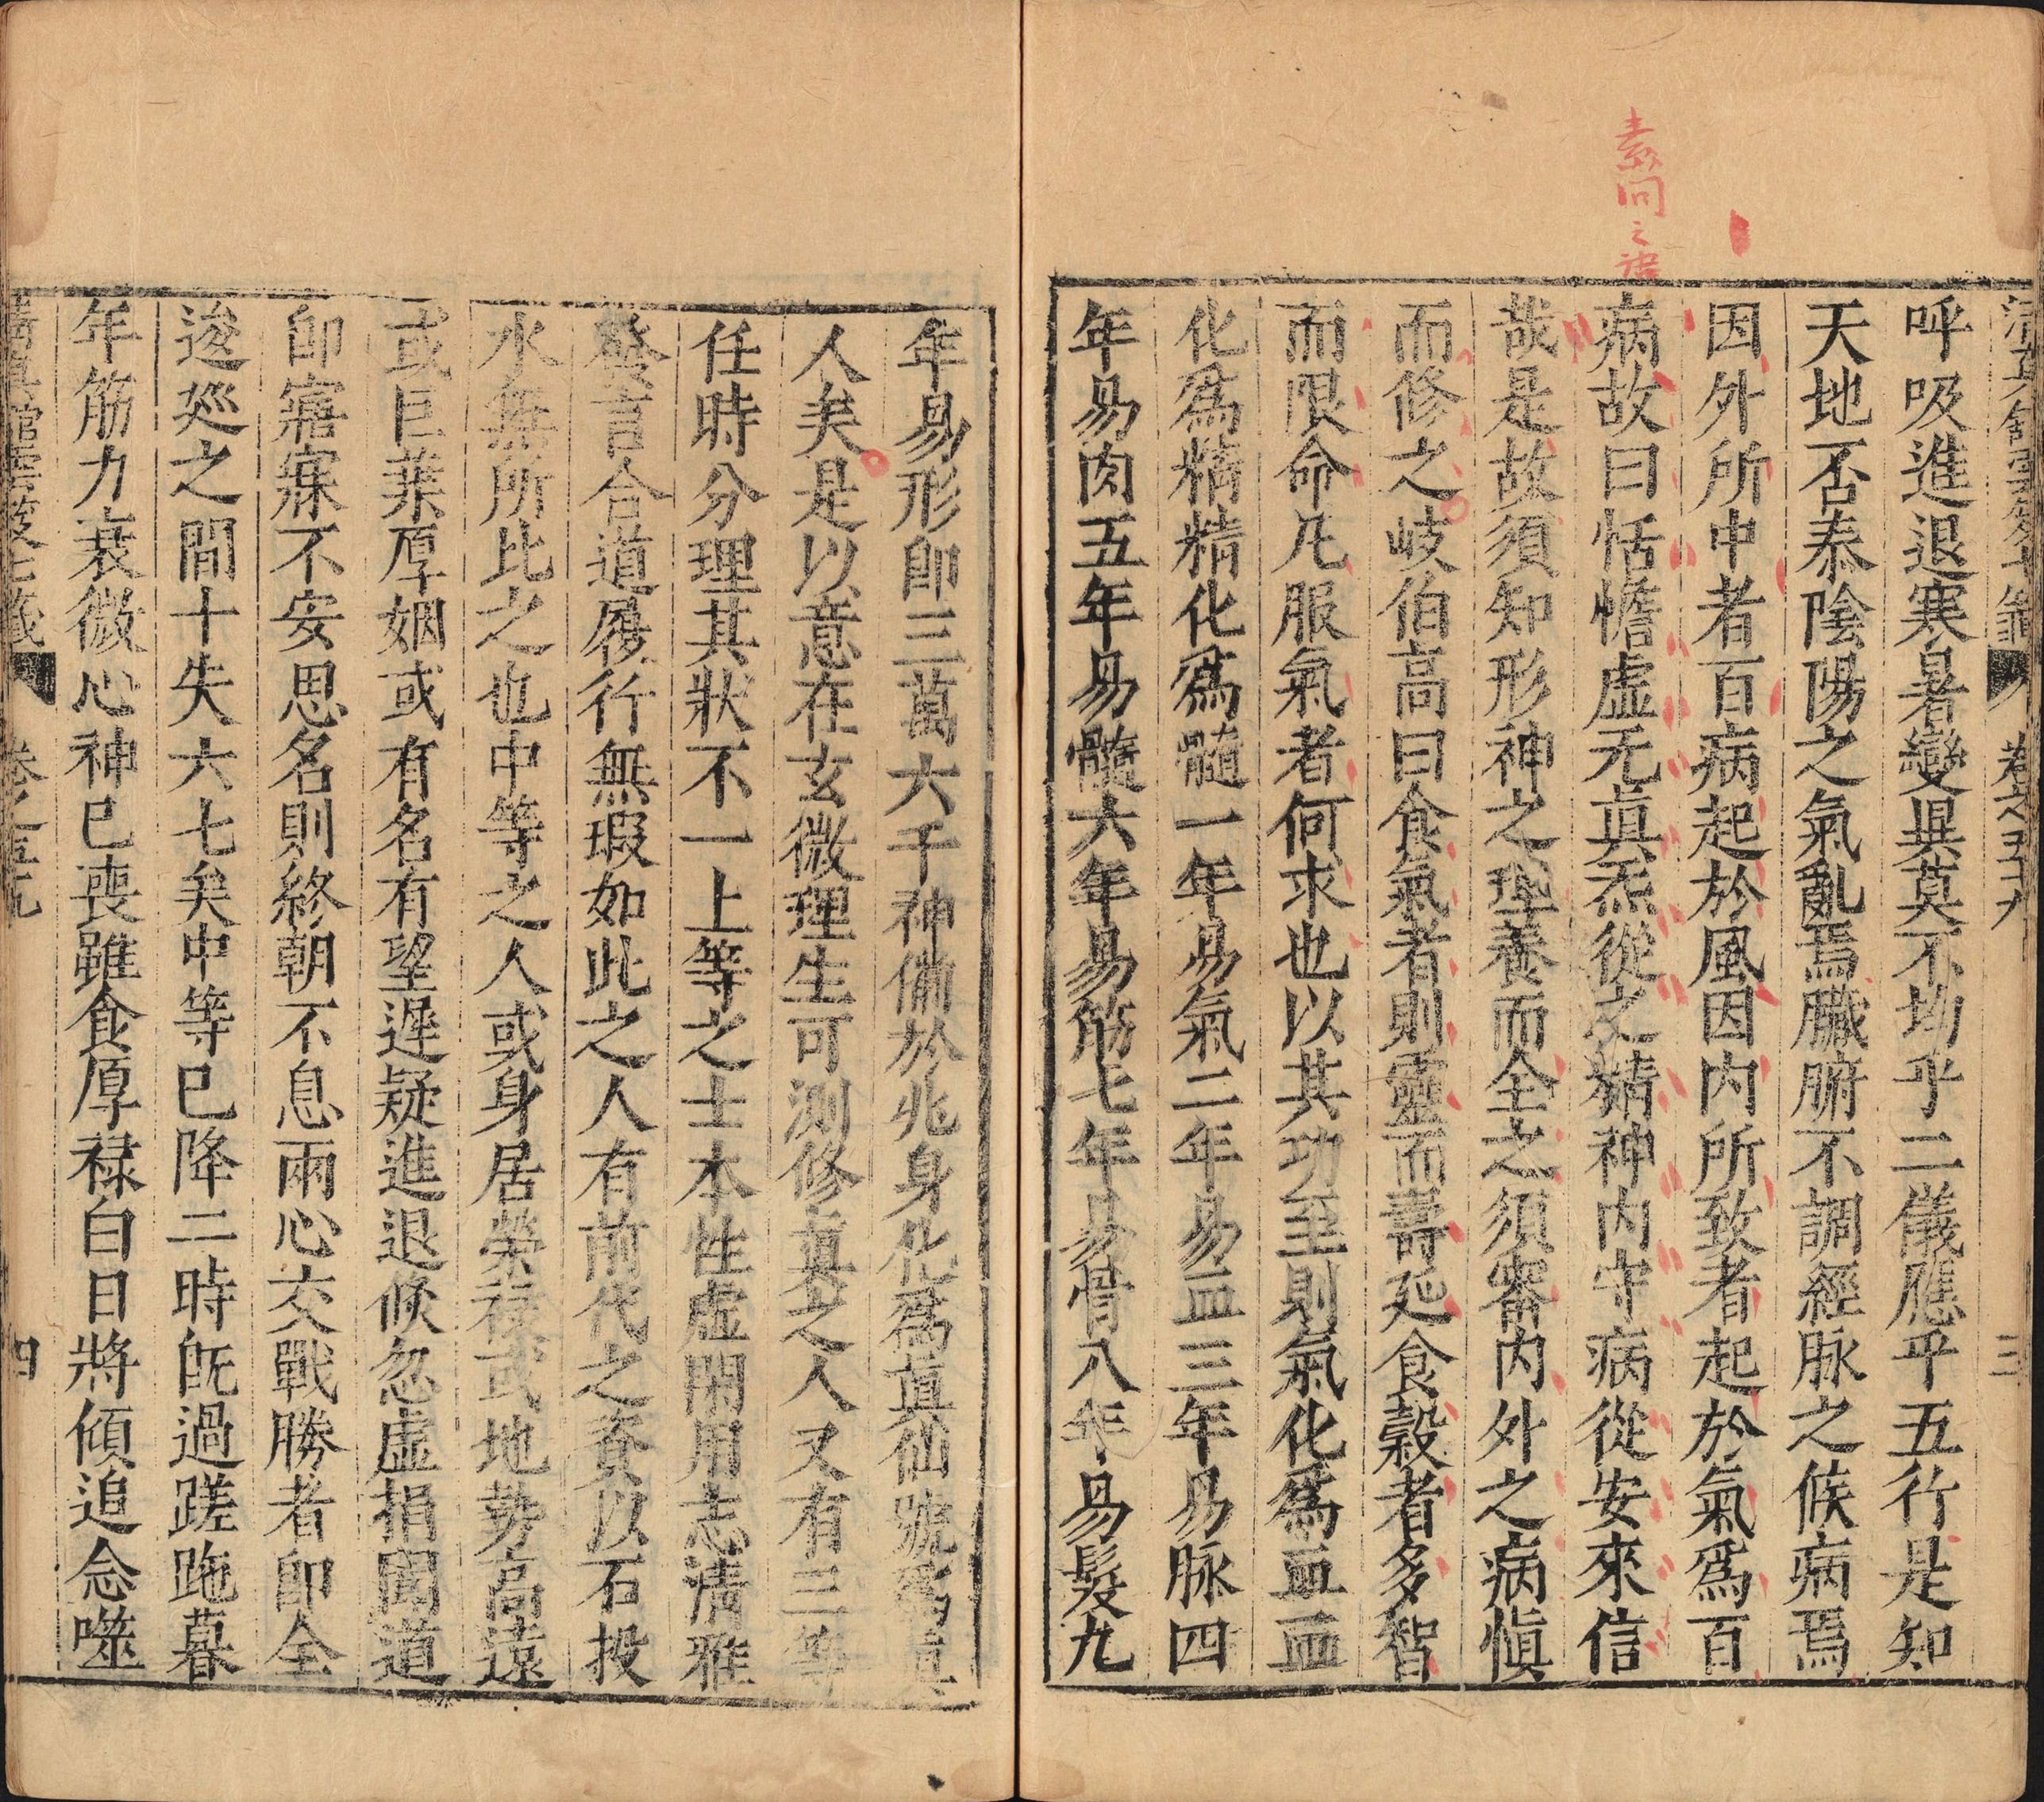 素問之語
清真館雲笈七籤 卷之五十九 三
呼吸進退寒暑變異莫不均乎二儀應乎五行是知
天地否泰陰陽之氣亂焉臟腑不調經脉之候病焉
因外所中者百病起於風因内所致者起於氣爲百
病故曰恬憺虛无真炁從之精神内守病從安來信
哉是故須知形神之理養而全之須審内外之病慎
而修之岐伯高曰食氣者則靈而壽延食穀者多智
而限命凡服氣者何求也以其功至則氣化爲血血
化爲精精化爲髓一年易氣二年易血三年易脉四
年易肉五年易髓六年易筋七年易骨八年易髮九
年易形卽三萬六千神備於兆身化爲真仙號爲真
人矣是以意在玄微理生可測修真之人又有三等
任時分理其狀不一上等之士本性虛閑用志清雅
發言合道履行無瑕如此之人有前代之資以石投
水無所比之也中等之人或身居榮祿或地勢高遠
或巨業厚姻或有名有望遲疑進退倐忽虛捐聞道
卽寤寐不安思名則終朝不息兩心交戰勝者卽全
逡廵之間十失六七矣中等已降二時旣過蹉跎暮
年筋力衰微心神已喪雖食厚禄白日將傾追念噬
清真館雲笈七籤 卷之五十九 四